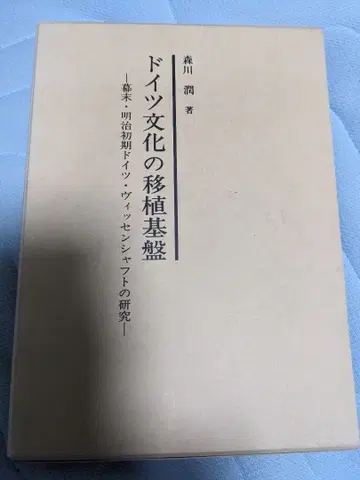 森川 潤 著
ドイツ文化の移植基盤
―幕末・明治初期ドイツ・ヴィッセンシャフトの研究―